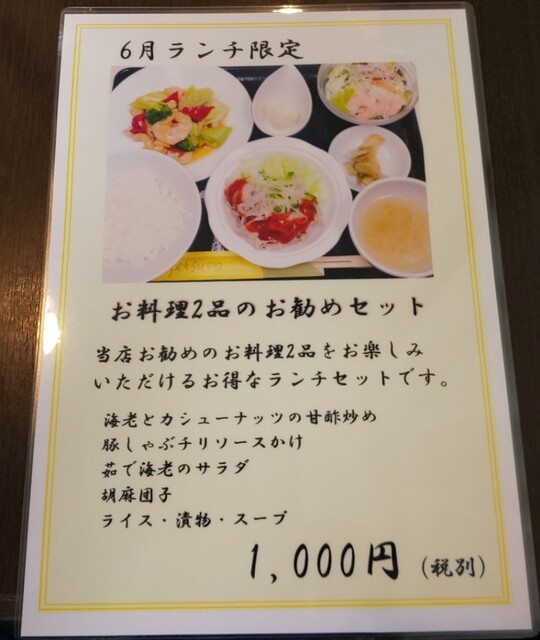 6月ランチ限定
お料理2品のお勧めセット
当店お勧めのお料理2品をお楽しみ
いただけるお得なランチセットです。
海老とカシューナッツの甘酢炒め
豚しゃぶチリソースかけ
茹で海老のサラダ
胡麻団子
ライス・漬物・スープ
1,000円（税別）